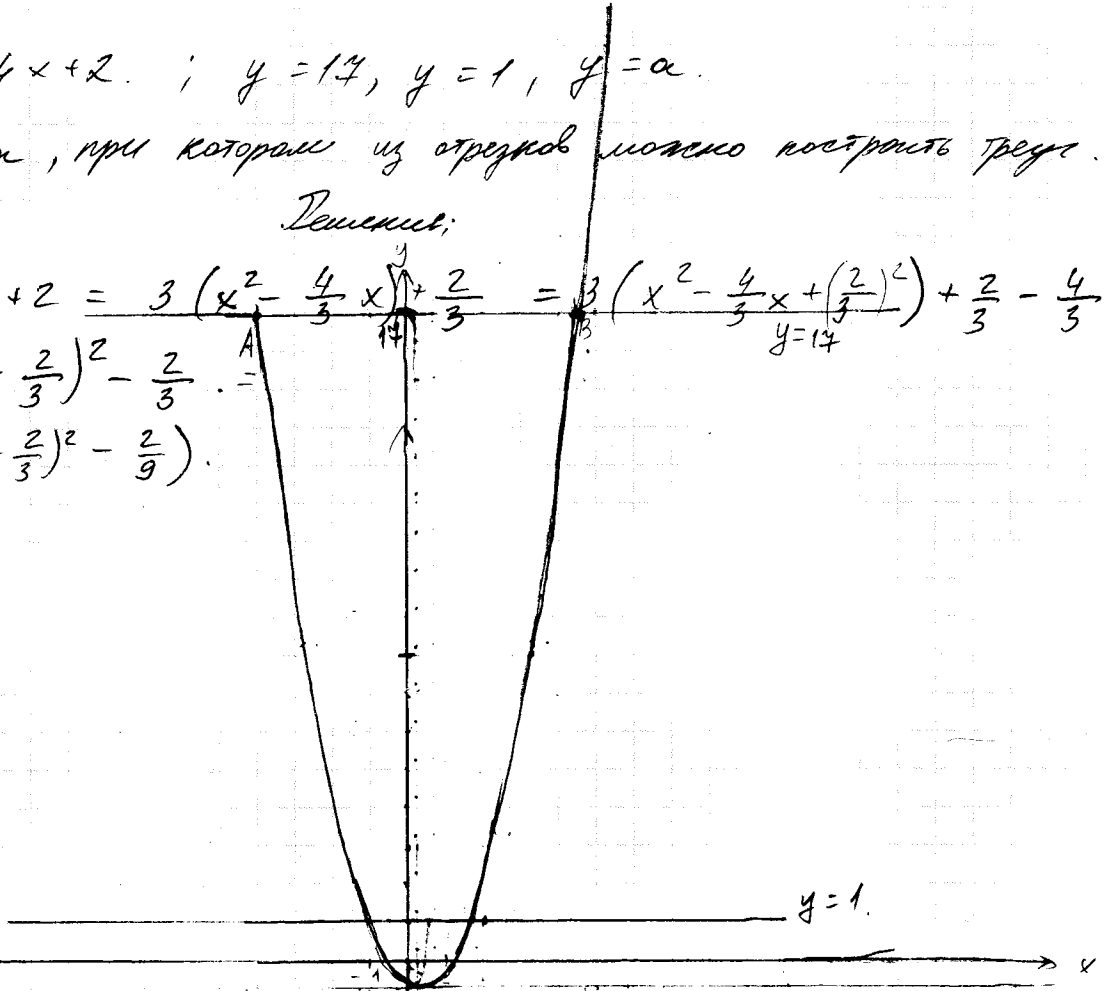 4x+2. ; y=17, y=1, y=a.
, при котором из отрезков можно построить треуг.
Решения;
+2 = 3(x² - 4/3 x) + 2/3 = 3(x² - 4/3 x + (2/3)²) + 2/3 - 4/3
2/3)² - 2/3 . =
2/3)² - 2/9).
y
A 17 B y=17
y=1.
-1 x